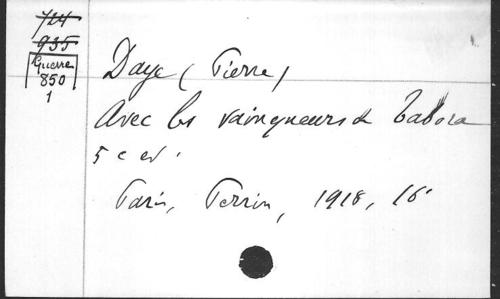 724
935
Guerre
850
1
Daye (Pierre)
Avec les vainqueurs de Tabora
5e ed.
Paris, Perrin, 1918, 16°